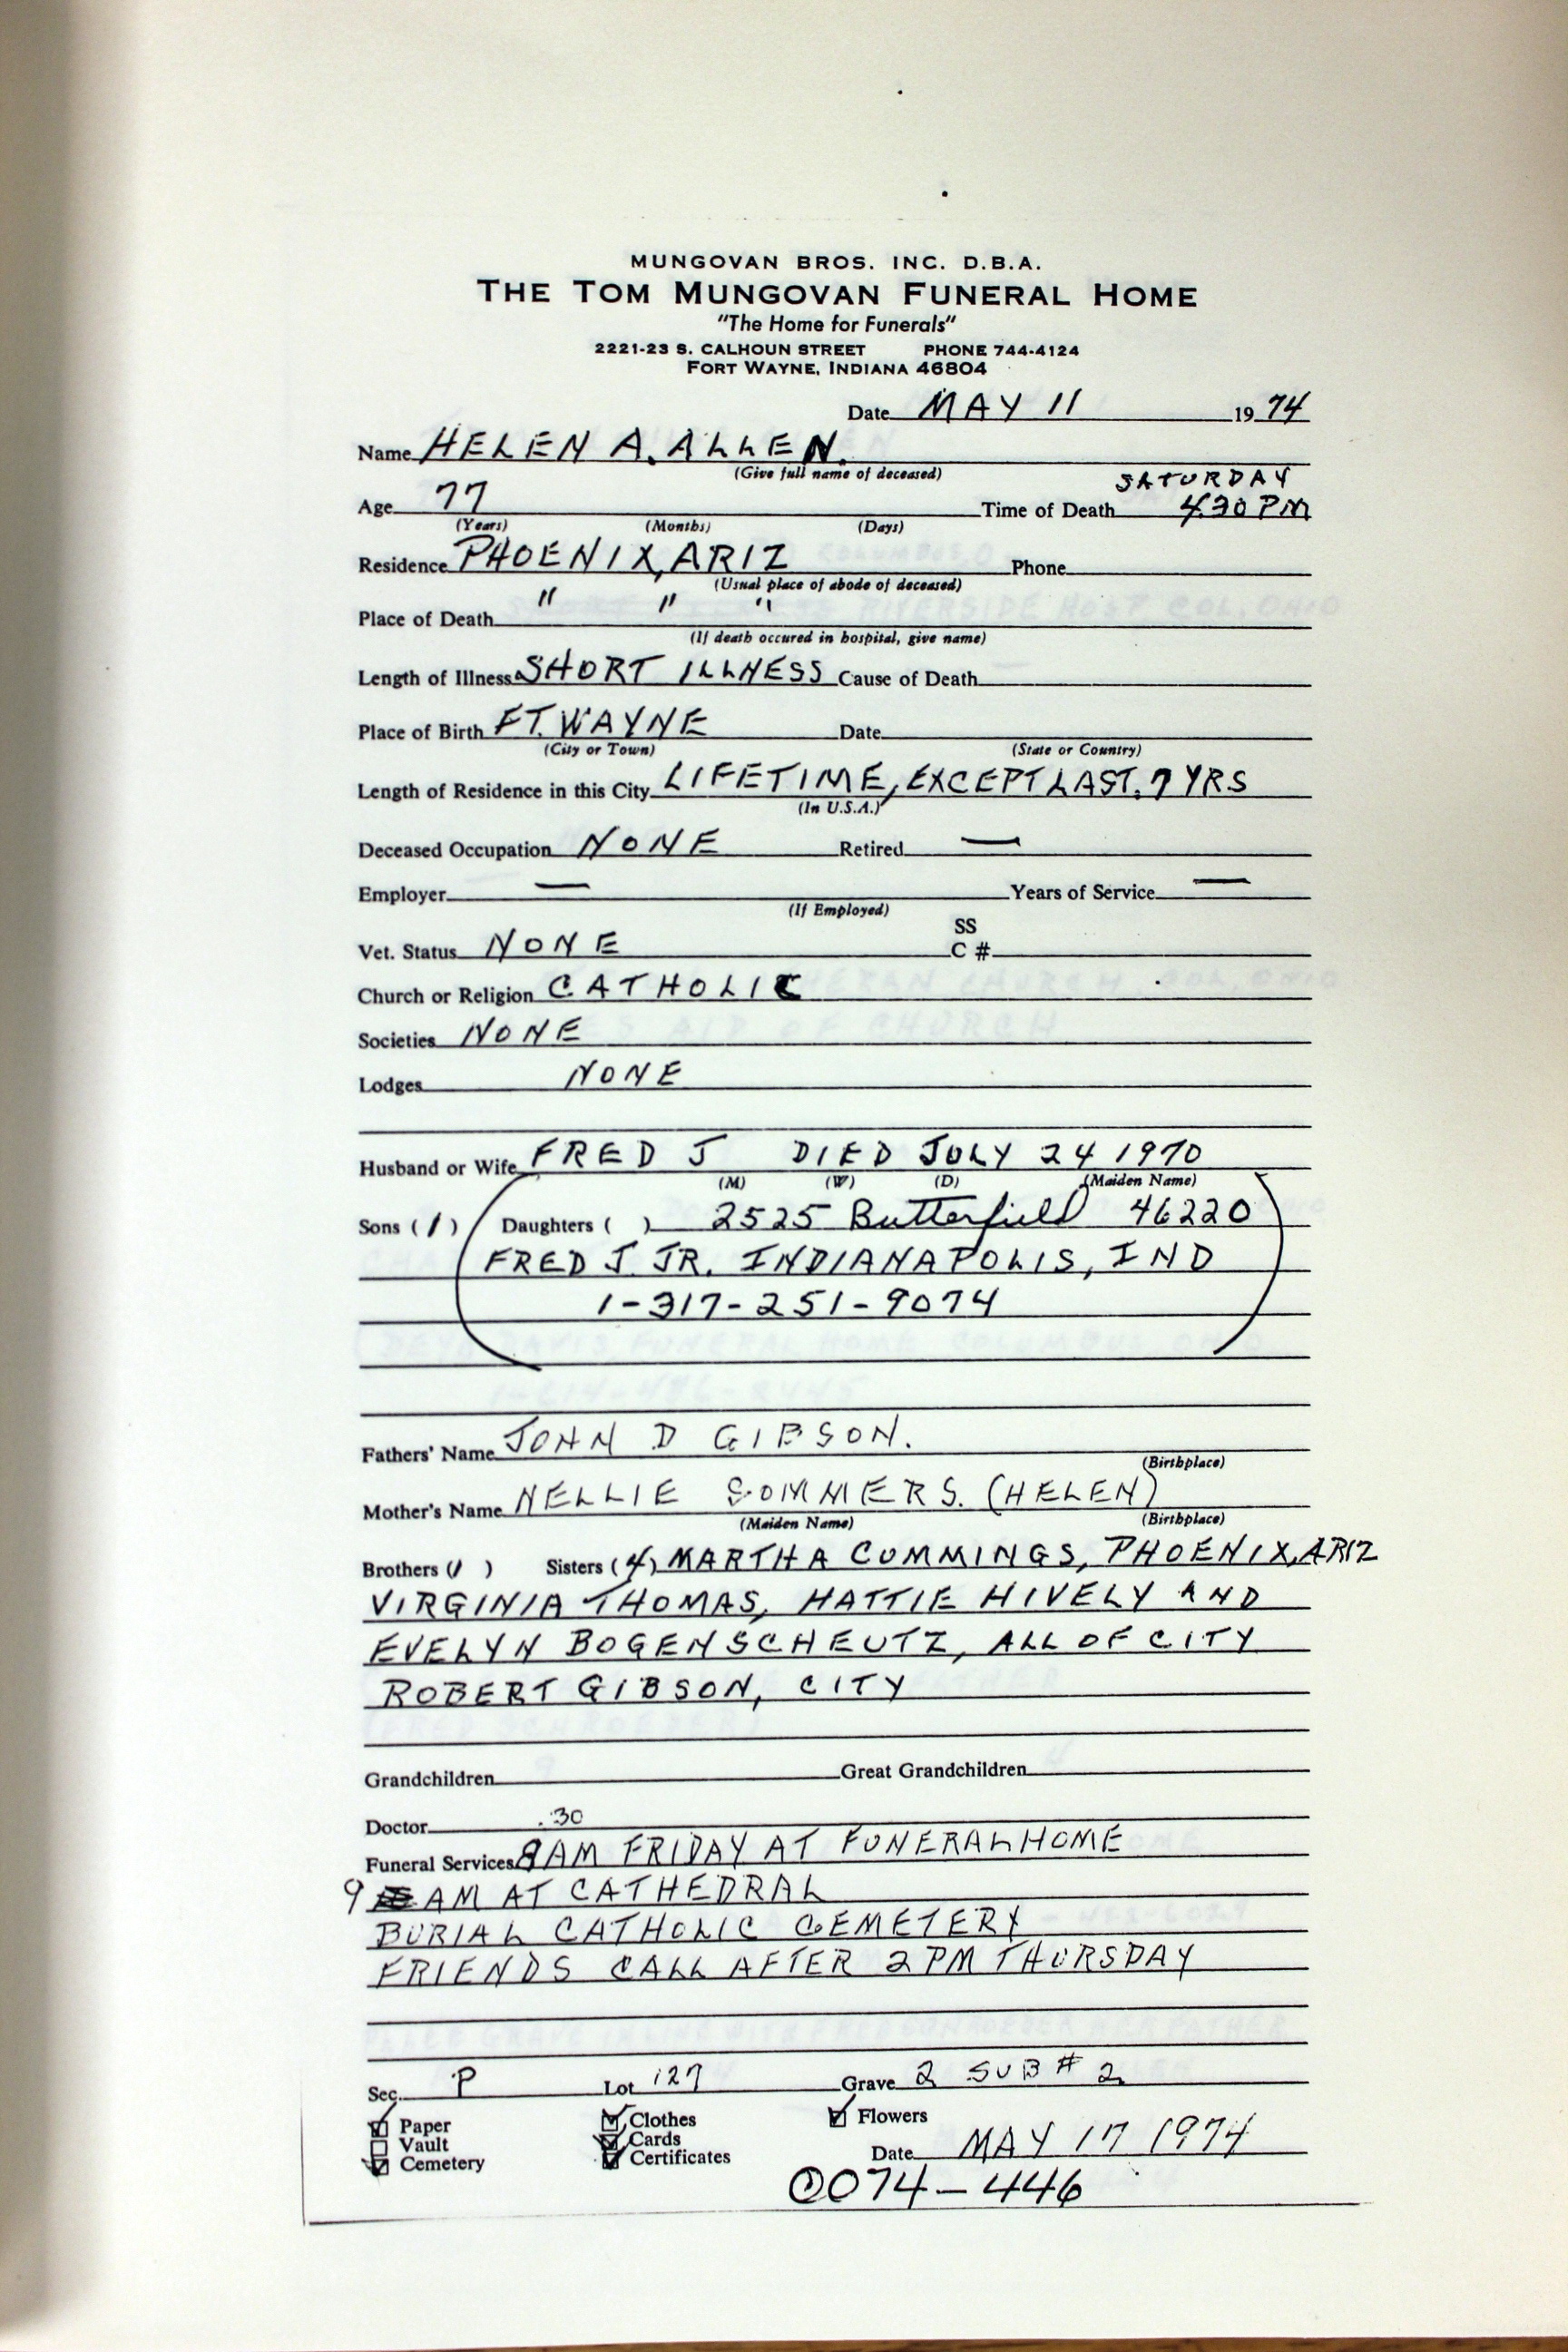 MUNGOVAN BROS. INC. D.B.A.
THE TOM MUNGOVAN FUNERAL HOME
"The Home for Funerals"
2221-23 S. CALHOUN STREET PHONE 744-4124
FORT WAYNE, INDIANA 46804
Date MAY 11 1974
Name HELEN A. ALLEN.
(Give full name of deceased)
SATURDAY
Age 77 Time of Death 4:30 PM
(Years) (Months) (Days)
Residence PHOENIX, ARIZ Phone
(Usual place of abode of deceased)
Place of Death " " "
(If death occured in hospital, give name)
Length of Illness SHORT ILLNESS Cause of Death
Place of Birth FT. WAYNE Date
(City or Town) (State or Country)
Length of Residence in this City LIFETIME, EXCEPT LAST. 7 YRS
(In U.S.A.)
Deceased Occupation NONE Retired —
Employer — Years of Service —
(If Employed)
SS
Vet. Status NONE C #
Church or Religion CATHOLIC
Societies NONE
Lodges NONE
Husband or Wife FRED J DIED JULY 24 1970
(M) (W) (D) (Maiden Name)
Sons (1) Daughters ( ) 2525 Butterfield 46220
FRED J. JR. INDIANAPOLIS, IND
1-317-251-9074
Fathers' Name JOHN D GIBSON.
(Birthplace)
Mother's Name NELLIE SOMMERS. (HELEN)
(Maiden Name) (Birthplace)
Brothers (1 ) Sisters (4) MARTHA CUMMINGS, PHOENIX, ARIZ
VIRGINIA THOMAS, HATTIE HIVELY AND
EVELYN BOGENSCHEUTZ, ALL OF CITY
ROBERT GIBSON, CITY
Grandchildren Great Grandchildren
Doctor
:30
Funeral Services 8 AM FRIDAY AT FUNERAL HOME
9 AM AT CATHEDRAL
BURIAL CATHOLIC CEMETERY
FRIENDS CALL AFTER 2 PM THURSDAY
Sec. P Lot 127 Grave 2 SUB # 2
Paper Clothes Flowers
Vault Cards
Cemetery Certificates Date MAY 17 1974
0074-446